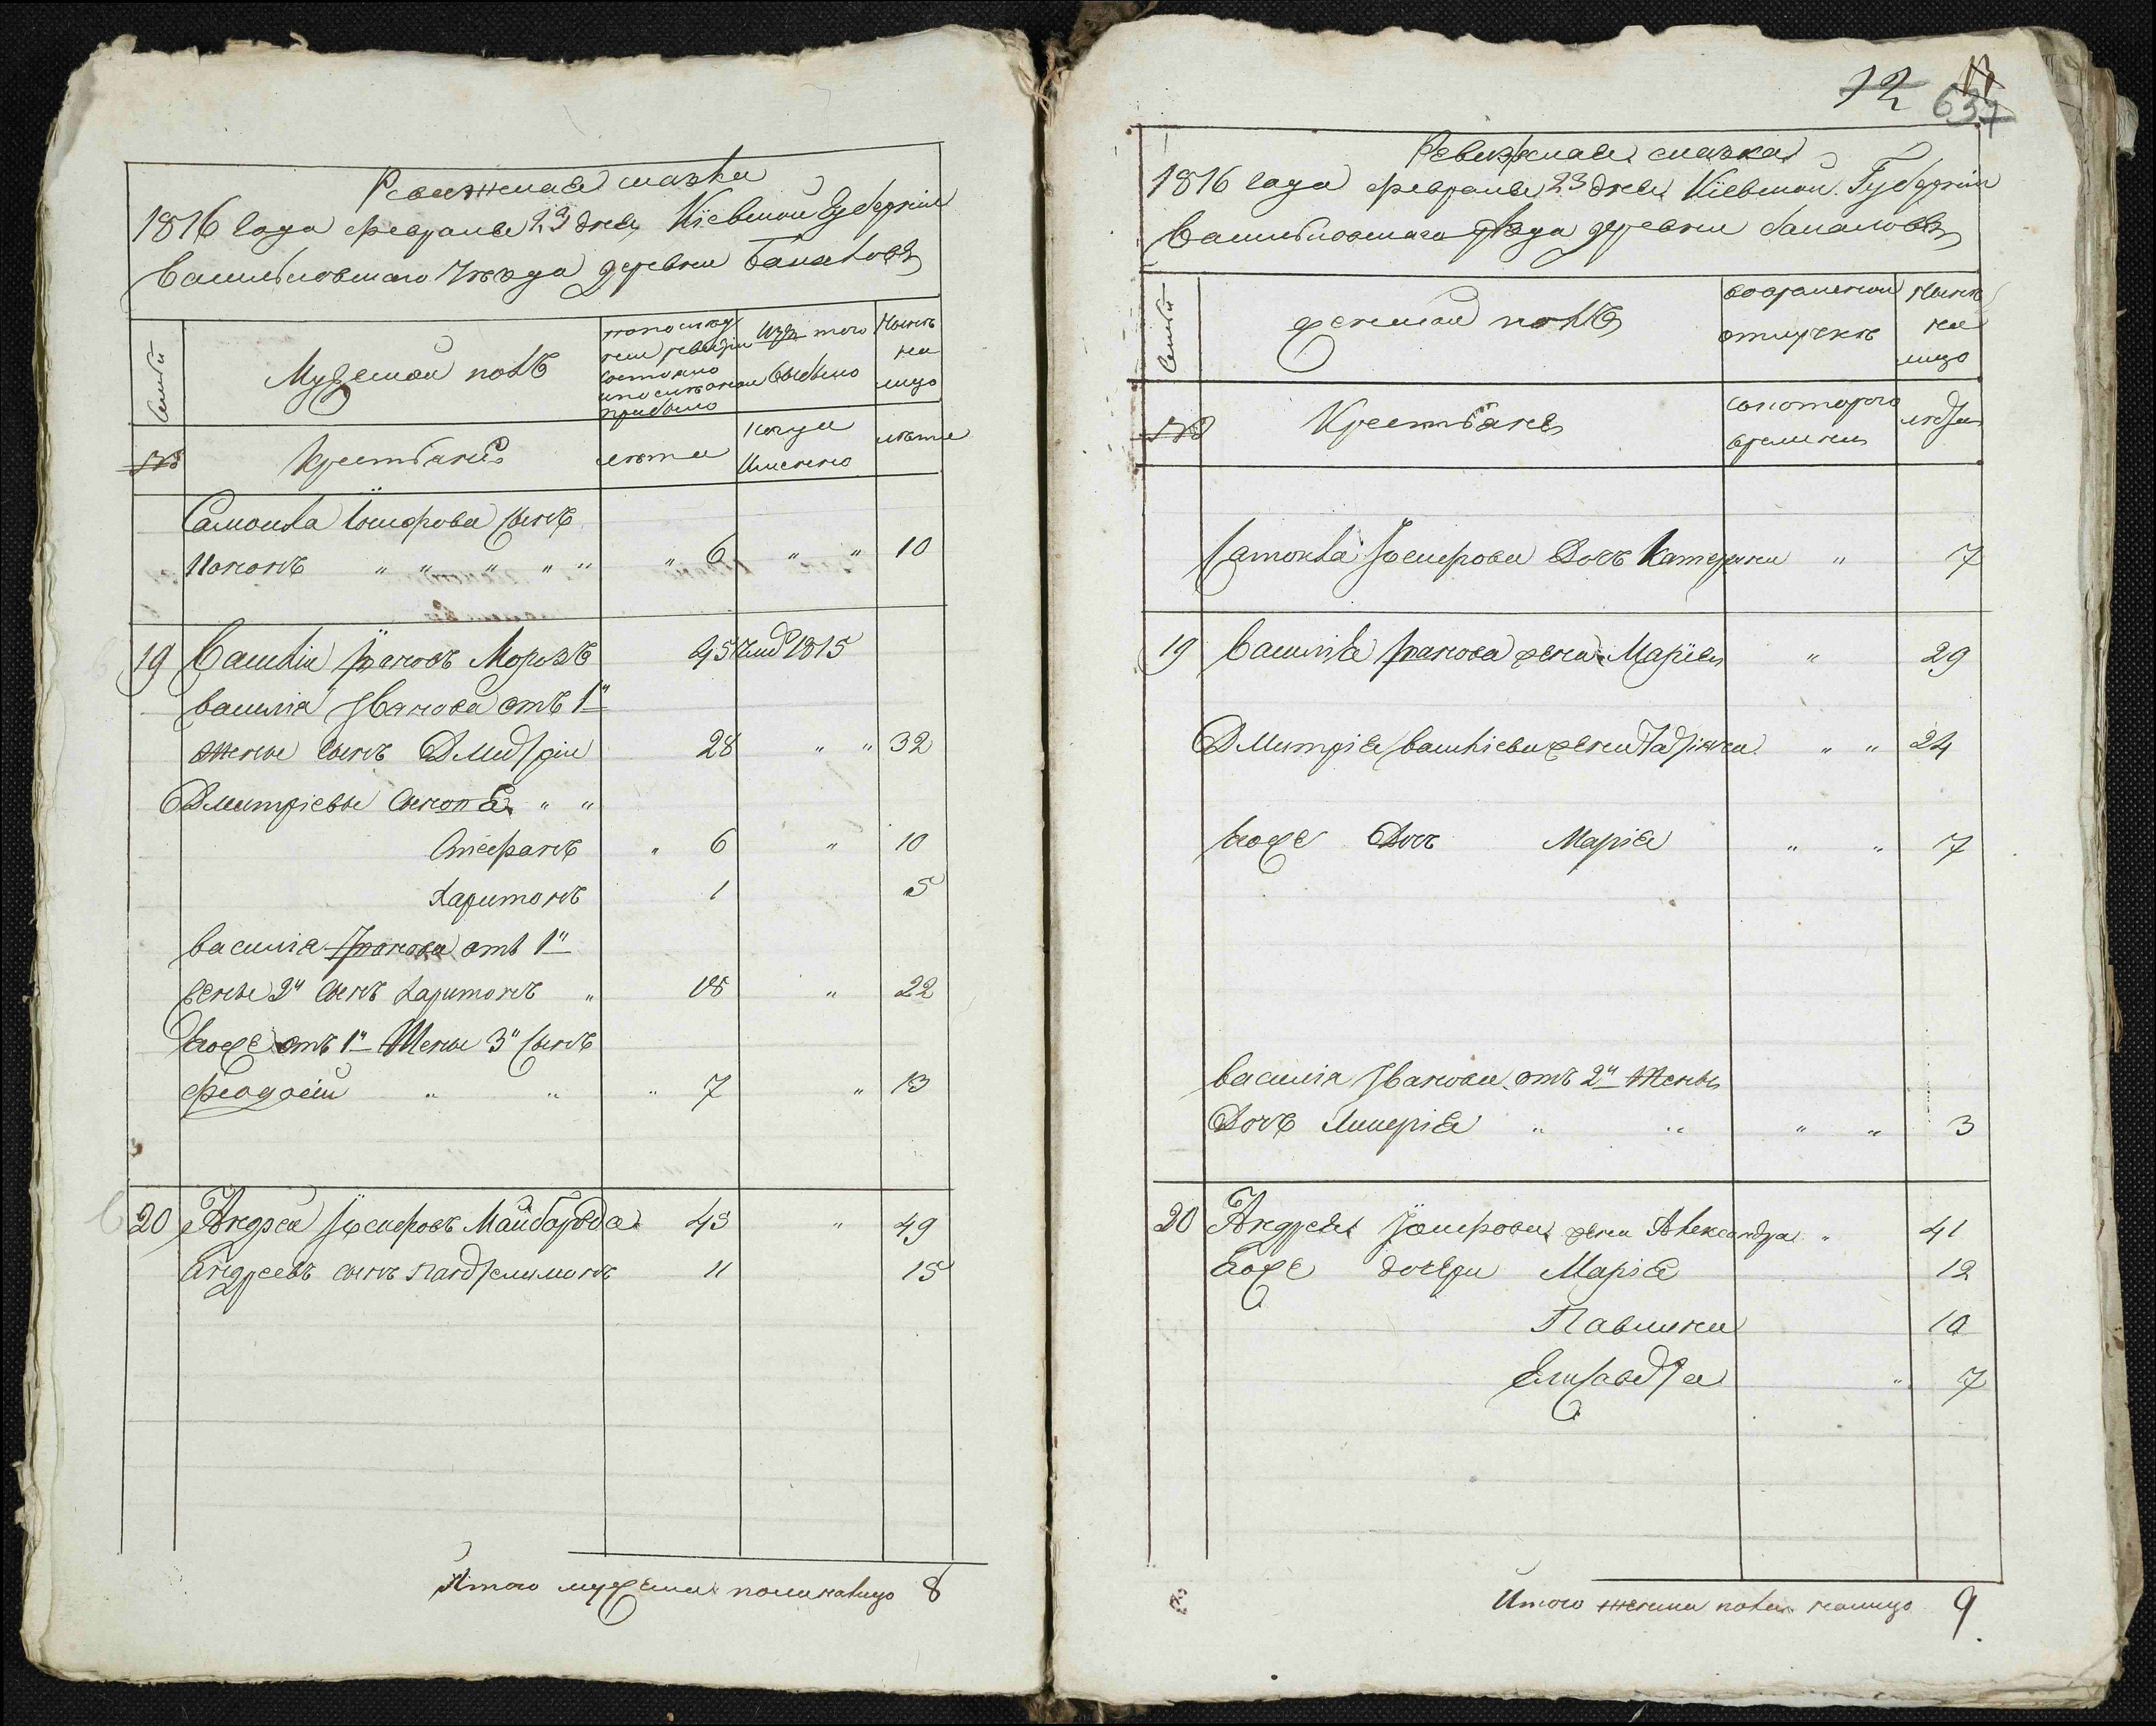 Ревижская сказка
1816 года февраля 23 дня Кіевской Губерніи
Васильковскаго уѣзда деревни
Семьи
Мужеской полъ
по последней ревизіи состояло и после оной прибыло
Изъ того выбыло
Нынѣ на лицо
№
Крестьяне
лѣта
когда именно
лѣта
Самойла Іосифова сынъ
Кононъ " " " " " " 6 " " 10
19 Василій Ивановъ Морозъ 45 1815
Василія Иванова отъ 1й
жены сынъ Дмитрій 28 " " 32
Дмитріевы сыновья " "
Стефанъ " 6 " 10
Харитонъ 1 5
Василія Иванова отъ 1й
жены 2й сынъ Харитонъ " 18 " 22
Егоже отъ 1й жены 3й сынъ
Феодосій " " " 7 " 13
20 Андрей Іосифовъ Майборода 45 " 49
Андреевъ сынъ Пантелимонъ 11 15
Итого мужеска пола налицо 8
12
637
Ревижская сказка
1816 года февраля 23 дня Кіевской Губерніи
Васильковскаго уѣзда деревни
Семьи
Женской полъ
во временной отлучкѣ
Нынѣ на лицо
№
Крестьяне
съ котораго времени
лѣта
Самойла Іосифова дочь Катерина " 7
19 Василія Иванова жена Марія " 29
Дмитрія Василіева жена Татіяна " " 24
Егоже дочь Марія " " 7
Василія Иванова отъ 2й жены
Дочь Гликерія " " " " 3
20 Андрея Іосифова жена Александра " 41
Егоже дочери Марія 12
Павлина 10
Елисавета " 7
Итого женска пола налицо 9